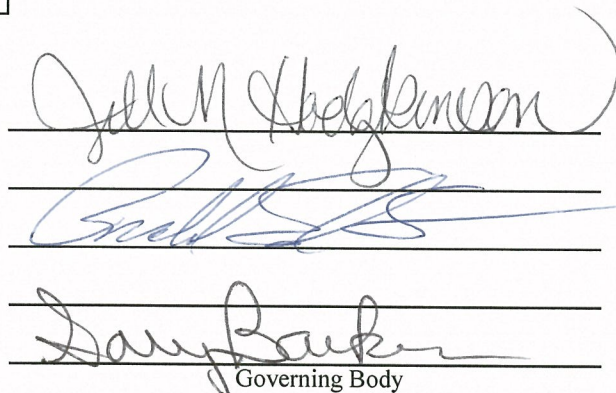 Jill M Hodgkinson
Gary Barker
Governing Body